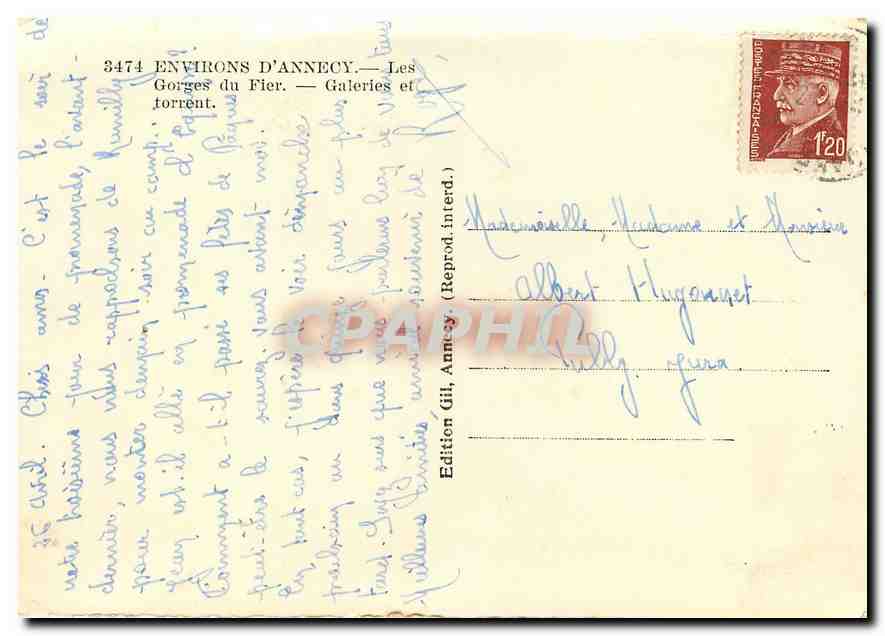 3474 ENVIRONS D'ANNECY. — Les
Gorges du Fier. — Galeries et
torrent.
POSTES FRANÇAISES
1F20
Edition Gil, Annecy. (Reprod. interd.)
Mademoiselle, Madame et Monsieur
Albert Hugonnet
Jura
26 Avril. Chers amis - C'est le soir de
notre troisième jour de promenade, l'avant-
dernier, nous nous rapprochons de Rumilly
pour monter demain soir au camp.
est-il allé en promenade
Comment a-t-il passé ses fêtes de Pâques
peut-être le saurez-vous avant moi.
En tout cas, j'espère le voir dimanche
prochain ou dans quinze jours au plus
tard. Soyez sûrs que nous parlerons de vous tous
Meilleures amitiés souvenir de
CPAPHIL